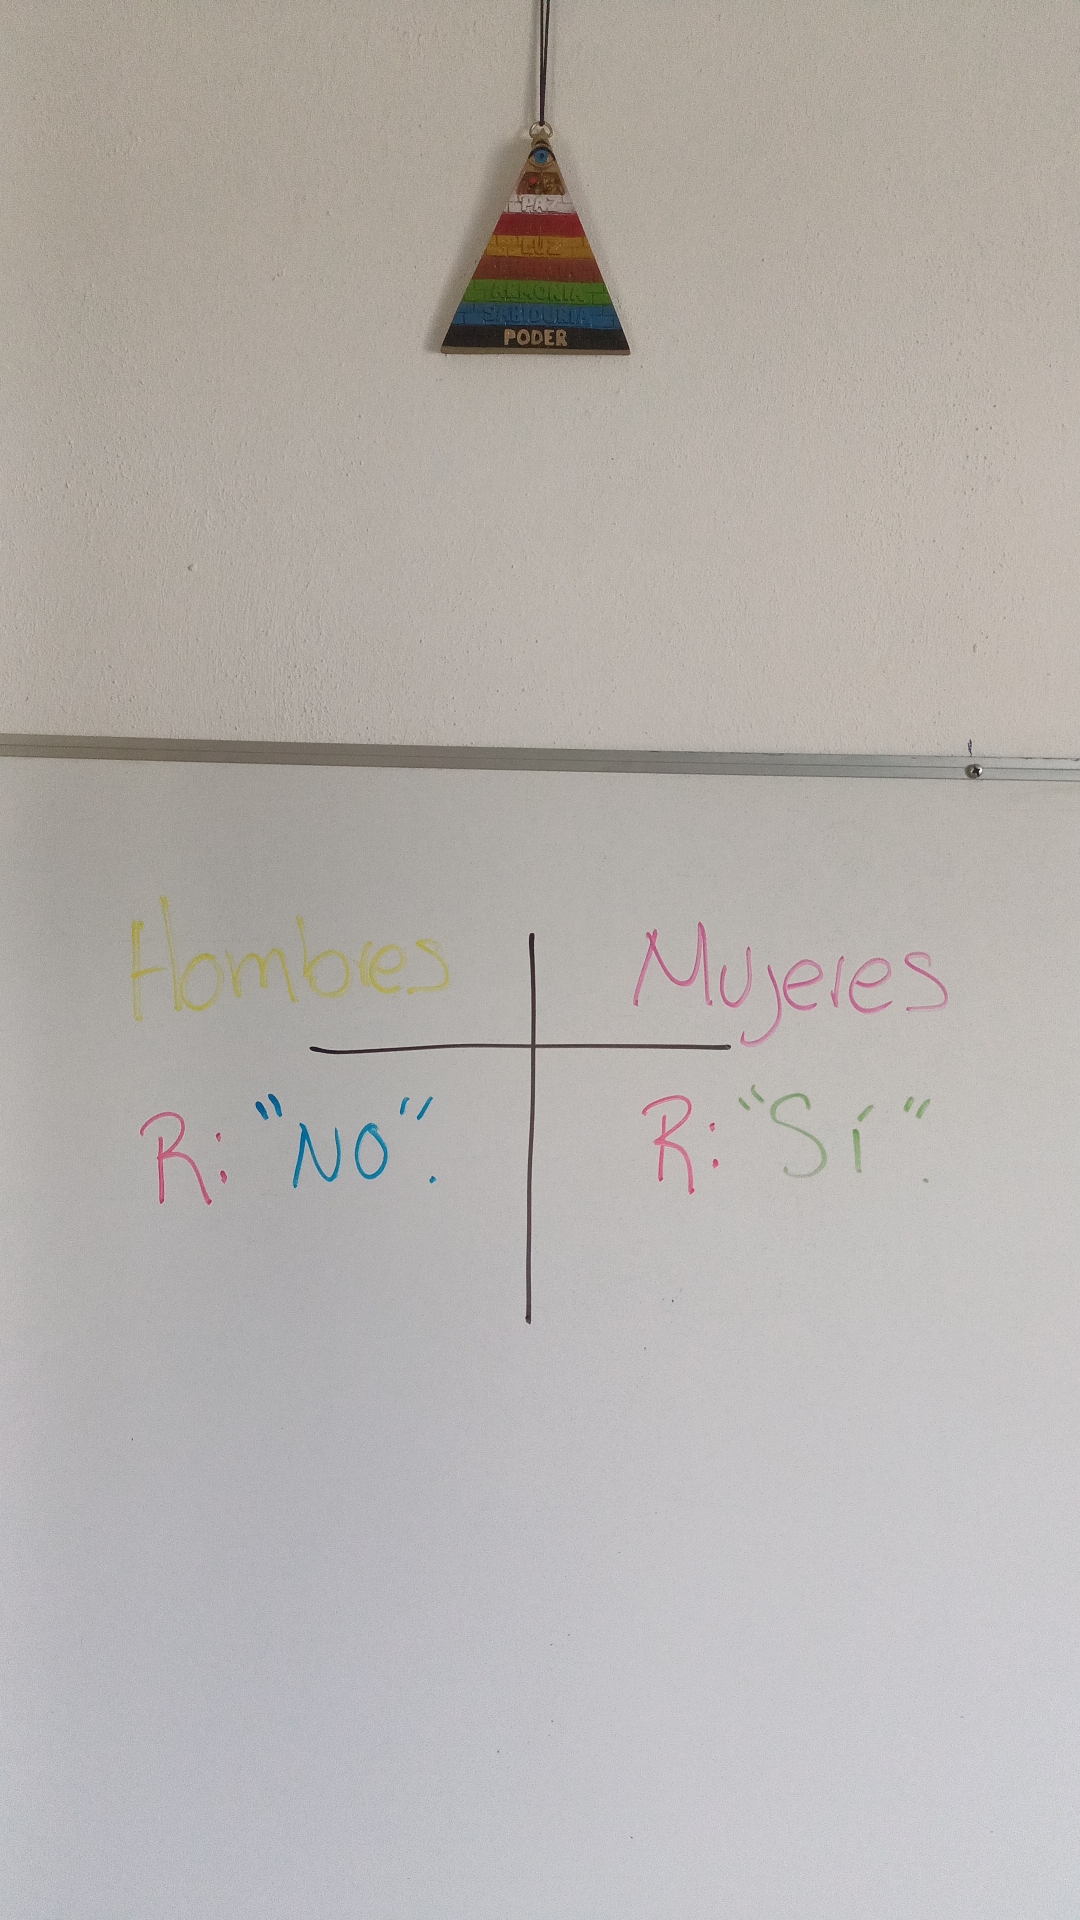 PAZ
LUZ
ARMONIA
SABIDURIA
PODER
Hombres
Mujeres
R: "NO".
R: "Sí".